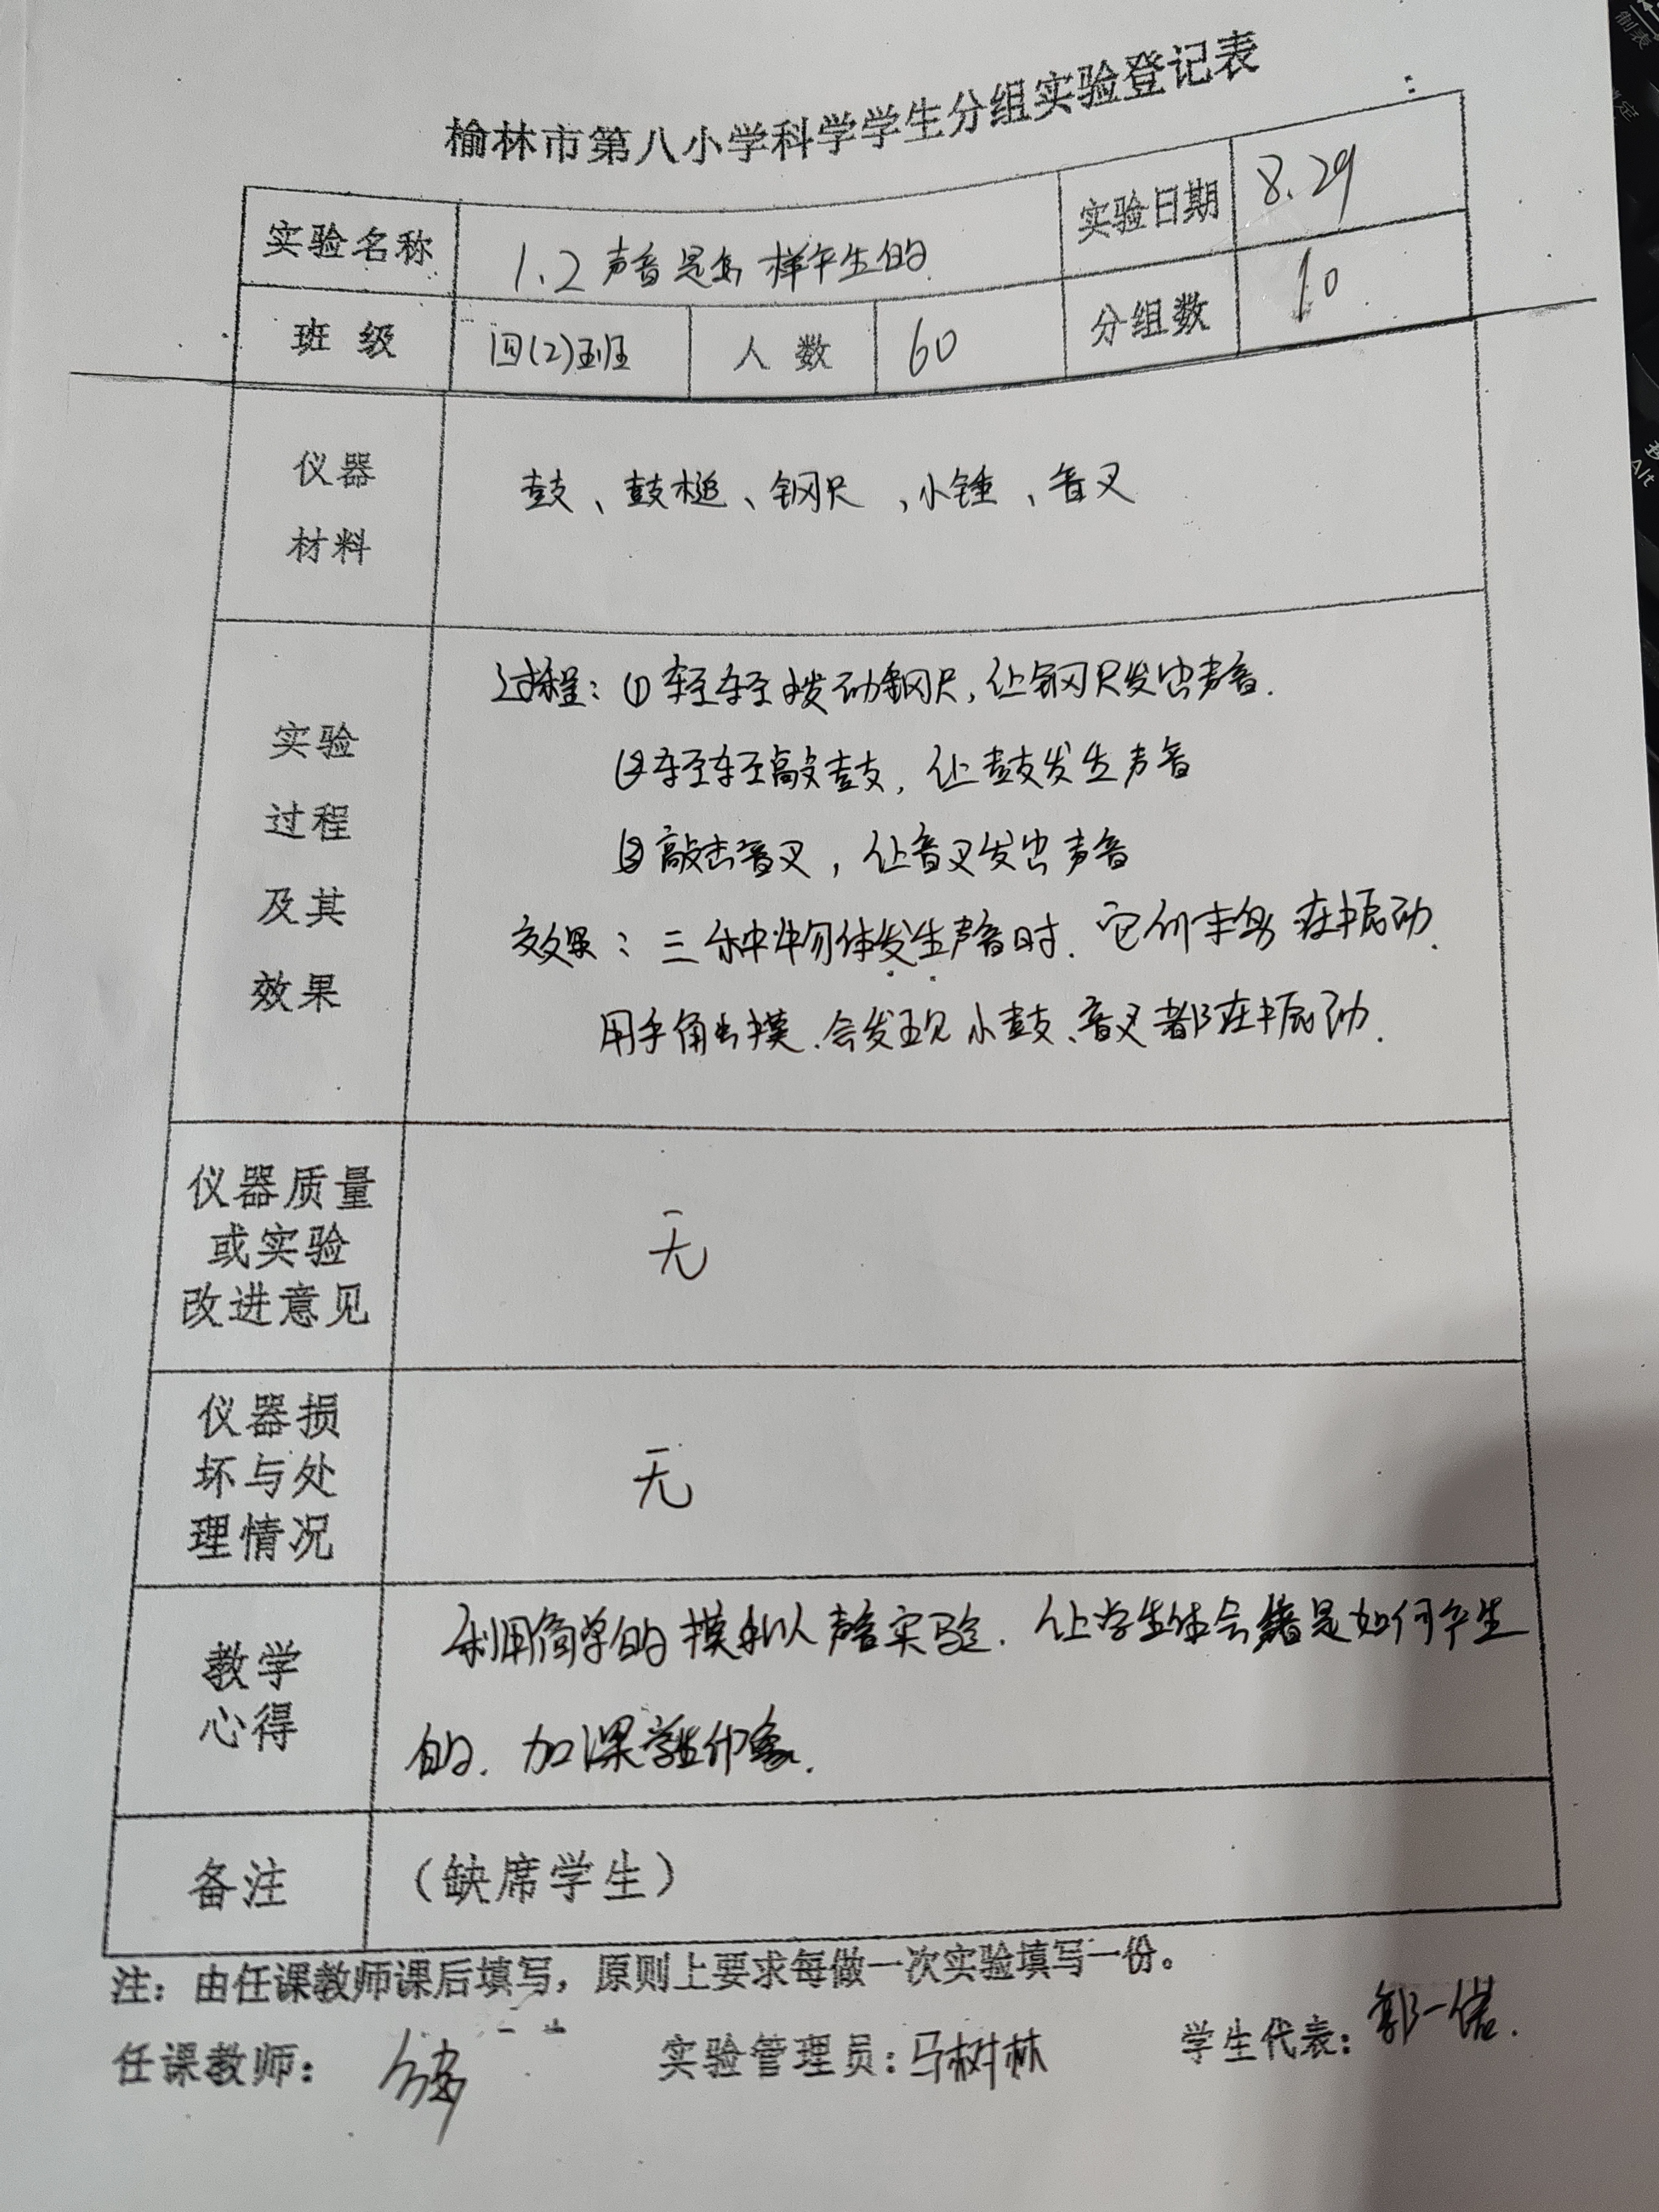 榆林市第八小学科学学生分组实验登记表
实验名称 1.2声音是怎样产生的 实验日期 8.29
班级 四(2)班 人数 60 分组数 10
仪器
材料
鼓、鼓槌、钢尺、小锤、音叉
实验
过程
及其
效果
过程：①轻轻拨动钢尺，让钢尺发出声音.
②轻轻敲鼓，让鼓发生声音
③敲击音叉，让音叉发出声音
效果：三种物体发生声音时.它们都在振动.
用手触摸.会发现小鼓、音叉都在振动.
仪器质量
或实验
改进意见
无
仪器损
坏与处
理情况
无
教学
心得
利用简单的模拟声音实验.让学生体会声音是如何产生
的.加深学生印象.
备注 （缺席学生）
注：由任课教师课后填写，原则上要求每做一次实验填写一份。
任课教师： 实验管理员：马树林 学生代表：郭一诺.
制表
Alt